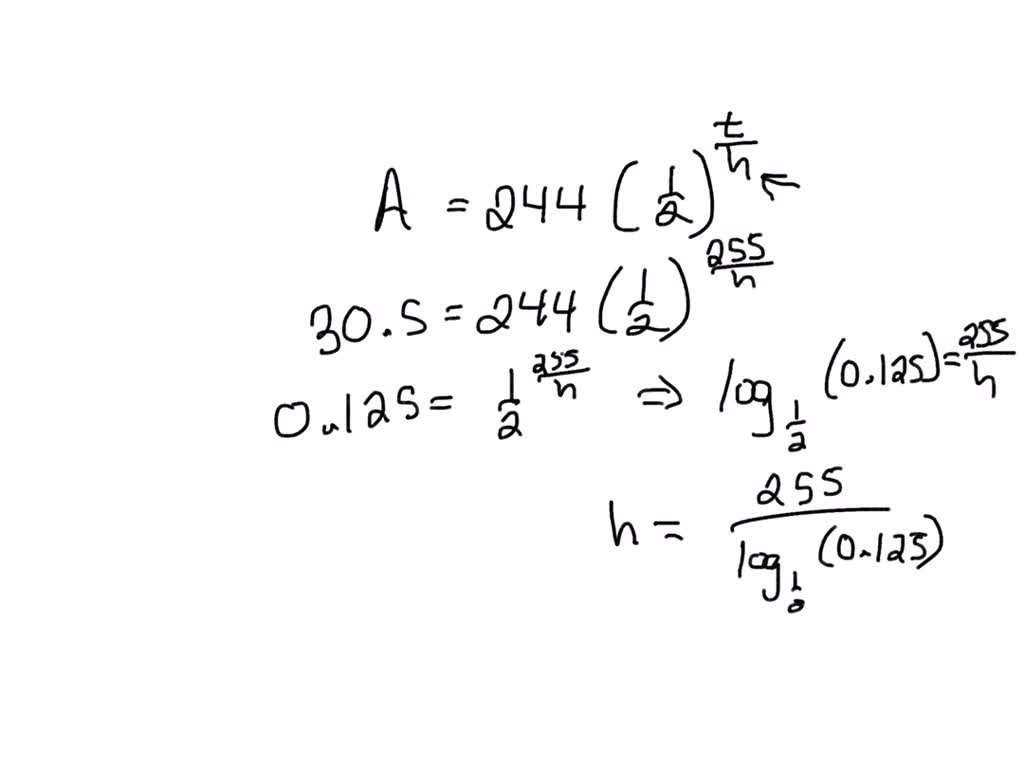 A = 244 (1/2)^(t/h) ←
30.5 = 244 (1/2)^(255/h)
0.125 = 1/2^(255/h) ⇒ log_(1/2) (0.125) = 255/h
h = 255 / log_(1/0) (0.125)